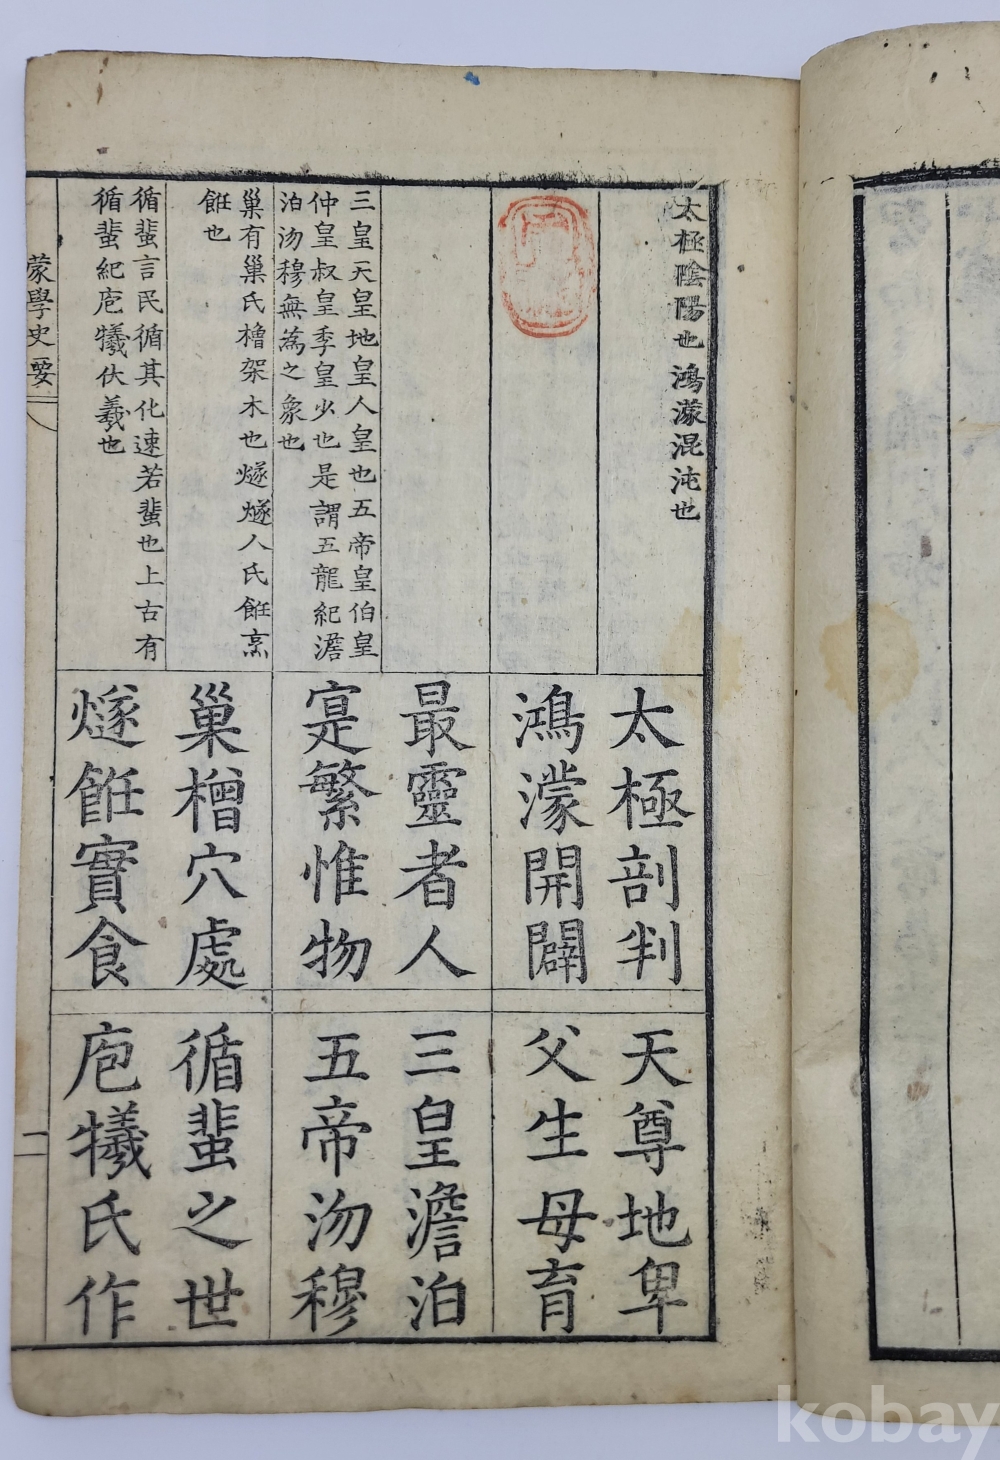 太極陰陽也鴻濛混沌也
三皇天皇地皇人皇也五帝皇伯皇
仲皇叔皇季皇少也是謂五龍紀澹
泊沕穆無為之象也
巢有巢氏橧架木也燧燧人氏飪烹
飪也
循蜚言民循其化速若蜚也上古有
循蜚紀庖犧伏羲也
太極剖判
鴻濛開闢
最靈者人
寔繁惟物
巢橧穴處
燧飪實食
天尊地卑
父生母育
三皇澹泊
五帝沕穆
循蜚之世
庖犧氏作
蒙學史要
二
kobay